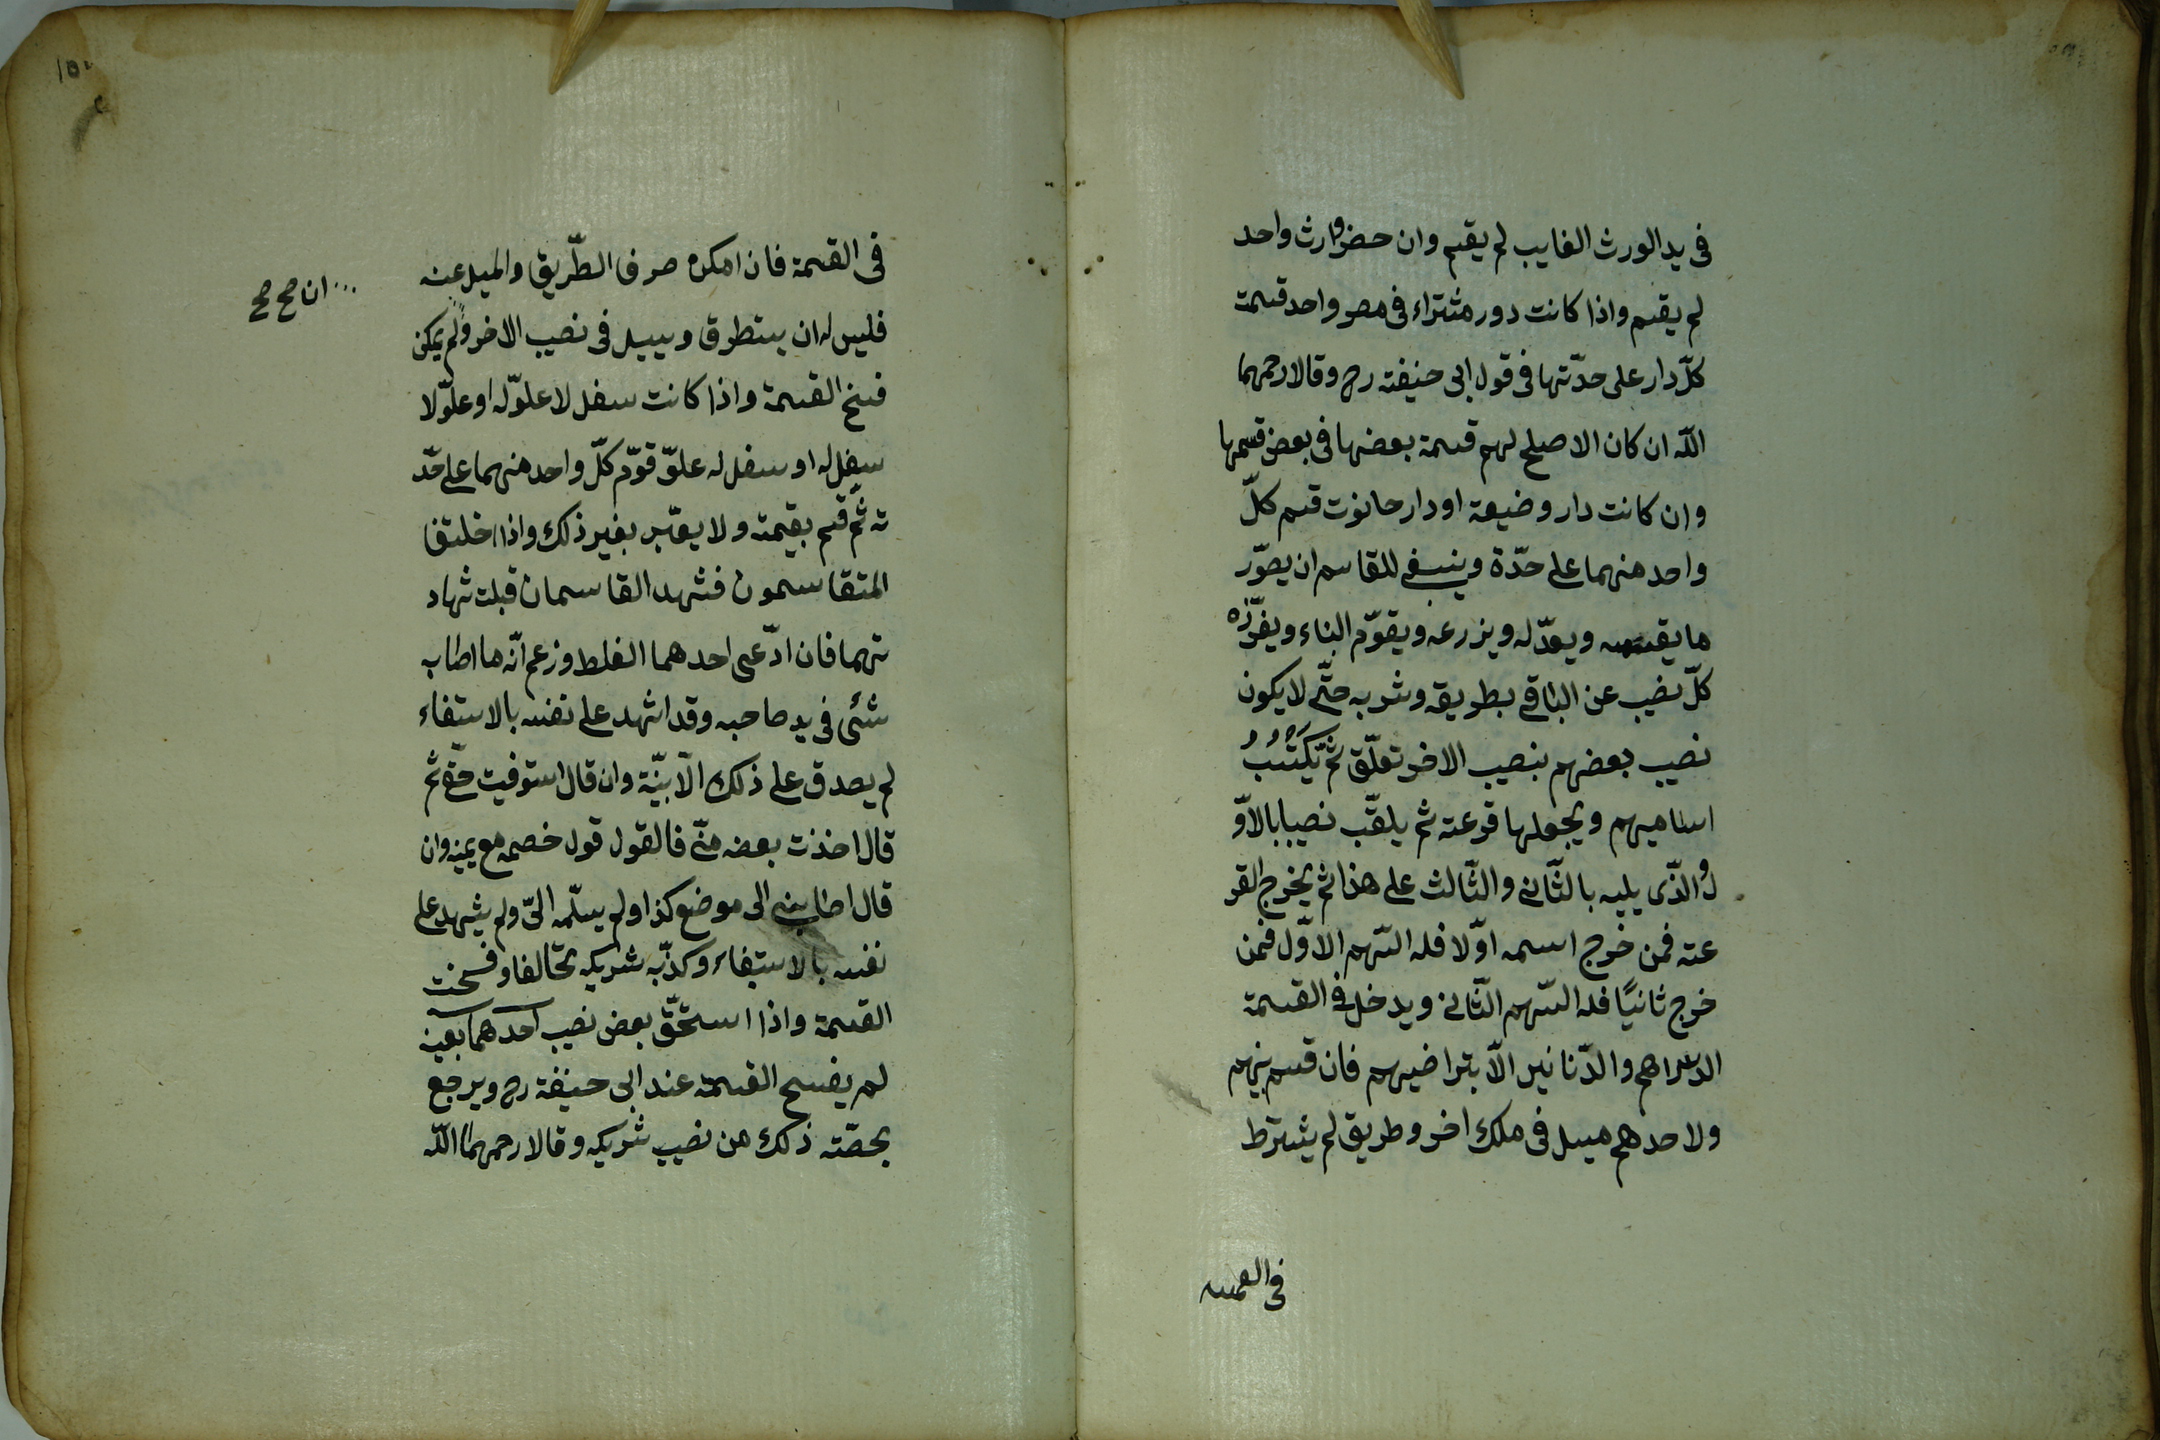 فى يد الورث الغايب لم يقسم وان حضر وارث واحد
لم يقسم واذا كانت دور مشتراء فى مصر واحد قسمت
كلّ دار على حدّتها فى قول ابى حنيفته رح وقالا رحمهما
اللّه ان كان الاصلح لهم قسمة بعضها فى بعض قسمها
وان كانت دار وضيعة او دار حانوت قسم كلّ
واحد منهما على حدّة وينبغى للقاسم ان يصوّر
ما يقسمه ويعدّله ويزرعه ويقوّم البناء ويفرّزه
كلّ نصيب عن الباقى بطريقه وشربه حتّى لا يكون
نصيب بعضهم بنصيب الاخر تعلّق ثم يَكْتُبُ
اساميهم ويجعلها قرعته ثم يلقّب نصيبا بالاوّ
ل والذّى يليه بالثّانى والثّالث على هذا ثم يخرج القر
عته فمن خرج اسمه اوّلا فله السّهم الاوّل فمن
خرج ثانيًا فله السّهم الثّانى ويدخل فى القسمة
الدّراهم والدّنانير الّا بتراضيهم فان قسم بينهم
ولاحدهم مسيل فى ملك اخر وطريق لم يشترط
فى القسمه
فى القسمة فان امكن صرف الطّريق والميل عنه
ان صح صح
فليس له ان يستطرق ويسيل فى نصيب الاخر ولم يمكن
فسخ القسمة واذا كانت سفل لا علوّ له او علوّ لا
سفل له او سفل له علوّ قوّم كلّ واحد منهما على حدّ
ته ثمّ قسم بقيمته ولا يعتبر بغير ذلك واذا اختلفا
المتقاسمون فشهد القاسمان قبلت شهاد
تهما فان ادّعى احدهما الغلط وزعم انّه ما اصابه
شئى فى يد صاحبه وقد اشهد على نفسه بالاستفاء
لم يصدق على ذلك الّا ببيّنة وان قال استوفيت حقّى ثم
قال اخذت بعضه منّى فالقول قول خصمه مع يمينه وان
قال اصابنى الى موضع كذا ولم يسلّمه الىّ ولم يشهد على
نفسه بالاستيفاء وكذّبه شريكه تحالفا وفسخت
القسمة واذا استحّق بعض نصيب احدهما بعينه
لم يفسح القسمة عند ابى حنيفة رح ويرجع
بحصّته ذلك من نصيب شريكه وقالا رحمهما اللّه